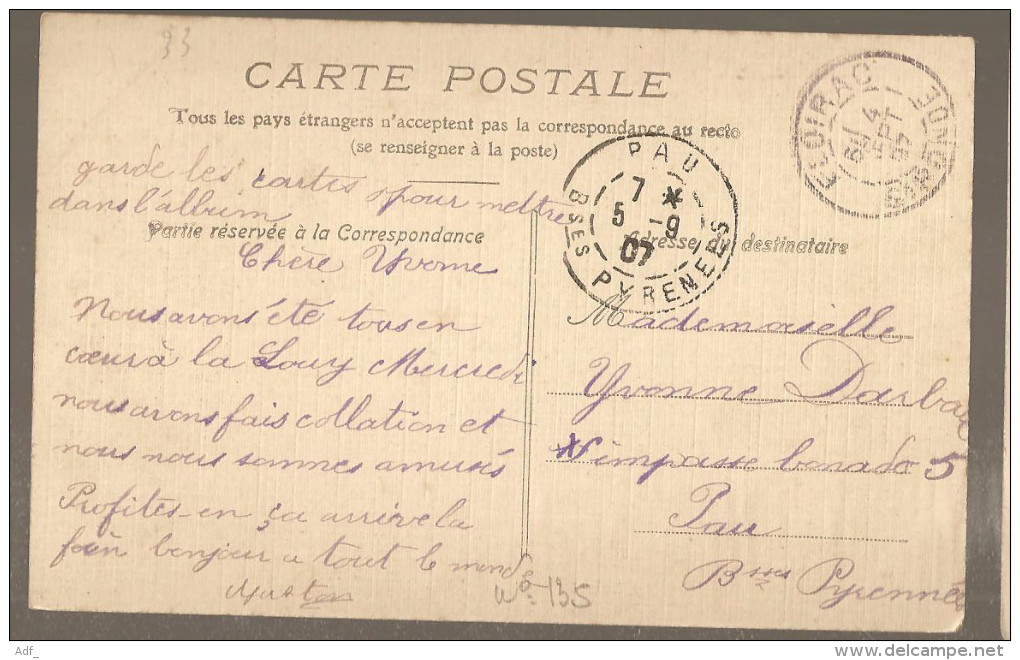 33
CARTE POSTALE
Tous les pays étrangers n'acceptent pas la correspondance au recto
(se renseigner à la poste)
garde les cartes pour mettre
dans l'album
Partie réservée à la Correspondance
Adresse du destinataire
Chère Yvonne
Nous avons été tous en
cœur à la Souy Mercredi
nous avons fais collation et
nous nous sommes amusés
Profites-en ça arrive la
fin bonjour a tout le monde
Mademoiselle
Yvonne
impasse 5
Pau
Bsses Pyrennées
FLOIRAC
4
SEPT
07
GIRONDE
PAU
7 *
5 -9
07
BSES PYRENEES
135
Adf_
http://www.delcampe.net